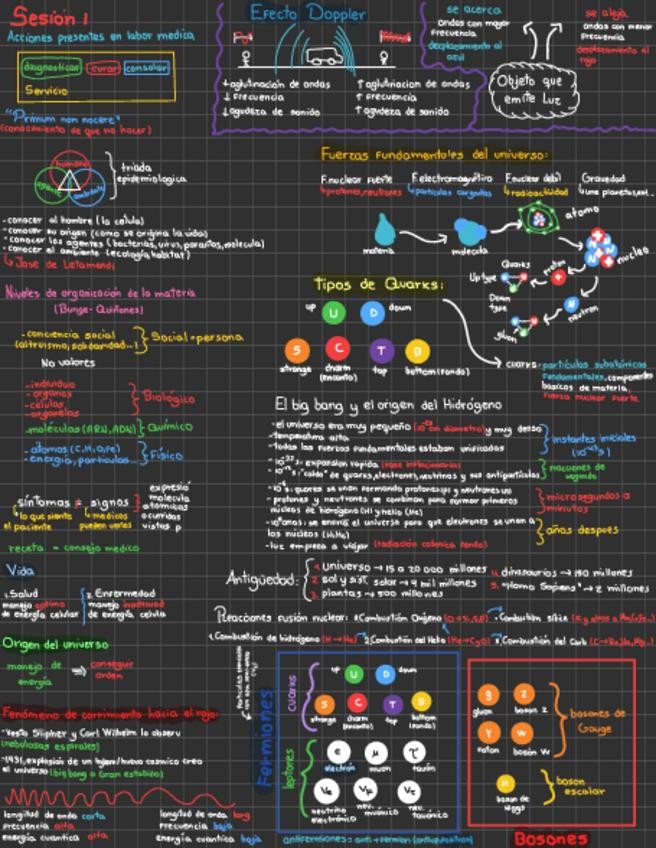 Sesión 1
Acciones presentes en labor medica
diagnosticar curar consolar
Servicio
"Primum non nocere"
(conocimiento de que no hacer)
humano
agente
ambiente
triada
epidemiologica
-conocer al hombre (la célula)
-conocer su origen (como se origina la vida)
-conocer los agentes (bacterias, virus, parasitos, molecula)
-conocer el ambiente (ecología, habitat)
↳ Jose de Letamendi
Niveles de organización de la materia
(Bunge-Quiñones)
-conciencia social
(altruismo, solidaridad...)
Social=persona
No valores
-individuo
-organos
-celulas
-organelas
Biológico
-moléculas (ARN, ADN)
Químico
-atomos (C, H, O, Fe)
-energía, particulas...
Físico
síntomas ≠ signos
↳ lo que siente
el paciente
↳ medicos
pueden verlos
expresio
molecula
atomicas
ocurridas
vistas p
receta = consejo medico
Vida
1. Salud
manejo optimo
de energia celular
2. Enfermedad
manejo inadecuad
de energia celula
Origen del universo
manejo de
energía
⇒ conseguir
orden
Fenómeno de corrimiento hacia el rojo:
-Vesto Slipher y Carl Wilhelm lo observ
(nebulosas espirales)
el universo (big bang o Gran estallido)
longitud de onda corta
frecuencia alta
energia cuantica alta
longitud de onda larg
frecuencia baja
energia cuantica baja
Efecto Doppler
↓aglutinacion de ondas
↓frecuencia
↓agudeza de sonido
↑aglutinacion de ondas
↑frecuencia
↑agudeza de sonido
se acerca
ondas con mayor
frecuencia
desplazamiento al
azul
se aleja
ondas con menor
frecuencia
desplazamiento al
rojo
Objeto que
emite luz
Fuerzas fundamentales del universo:
F.nuclear fuerte
↳protones, neutrones
F.electromagnético
↳particulas cargadas
F.nuclear debil
↳radioactividad
Gravedad
↳une planetas, est..
materia
molecula
atomo
nucleo
proton
neutron
Quarks
Up type
Down
type
gluon
Tipos de Quarks:
up U
D down
S strange
C charm
(encanto)
T top
B bottom (fondo)
cuarks: particulas subatómicas
fundamentales, componentes
basicos de materia.
Fuerza nuclear fuerte
El big bang y el origen del Hidrógeno
-el universo era muy pequeño y muy denso
-temperatura alta
-todas las fuerzas fundamentales estaban unificadas
instantes iniciales
expansion rapida (fase inflacionaria)
"caldo" de quarks, electrones, neutrinos y sus antiparticulas
fracciones de
segundo
quarks se unen formando protones (p) y neutrones (n)
-protones y neutrones se combinan para formar primeros
núcleos de hidrógeno (H) y helio (He)
microsegundos a
minutos
se enfrió el universo para que electrones se unan a
los nucleos (H, He)
-luz empieza a viajar (radiación cósmica fondo)
años despues
Antigüedad:
1. universo → 15 a 20 000 millones
2. sol y sist. solar → 4 mil millones
3. plantas → 500 millones
4. dinosaurios → 150 millones
5. "Homo Sapiens" → 2 millones
Reacciones fusión nuclear:
1. Combustión de hidrógeno (H→He)
2. Combustión del Helio
3. Combustion del Carb
4. Combustión Oxigeno
5. Combustion silice
Fermiones
cuarks
up U
D down
S strange
C charm
(encanto)
T top
B bottom
(fondo)
leptones
e electrón
μ muon
τ tauón
Ve neutrino
electrónico
Vμ neu.
muónico
Vτ neu.
tauónico
g gluon
Z boson Z
γ foton
W bosón W
bosones de
Gauge
H boson de
Higgs
boson
escalar
Bosones